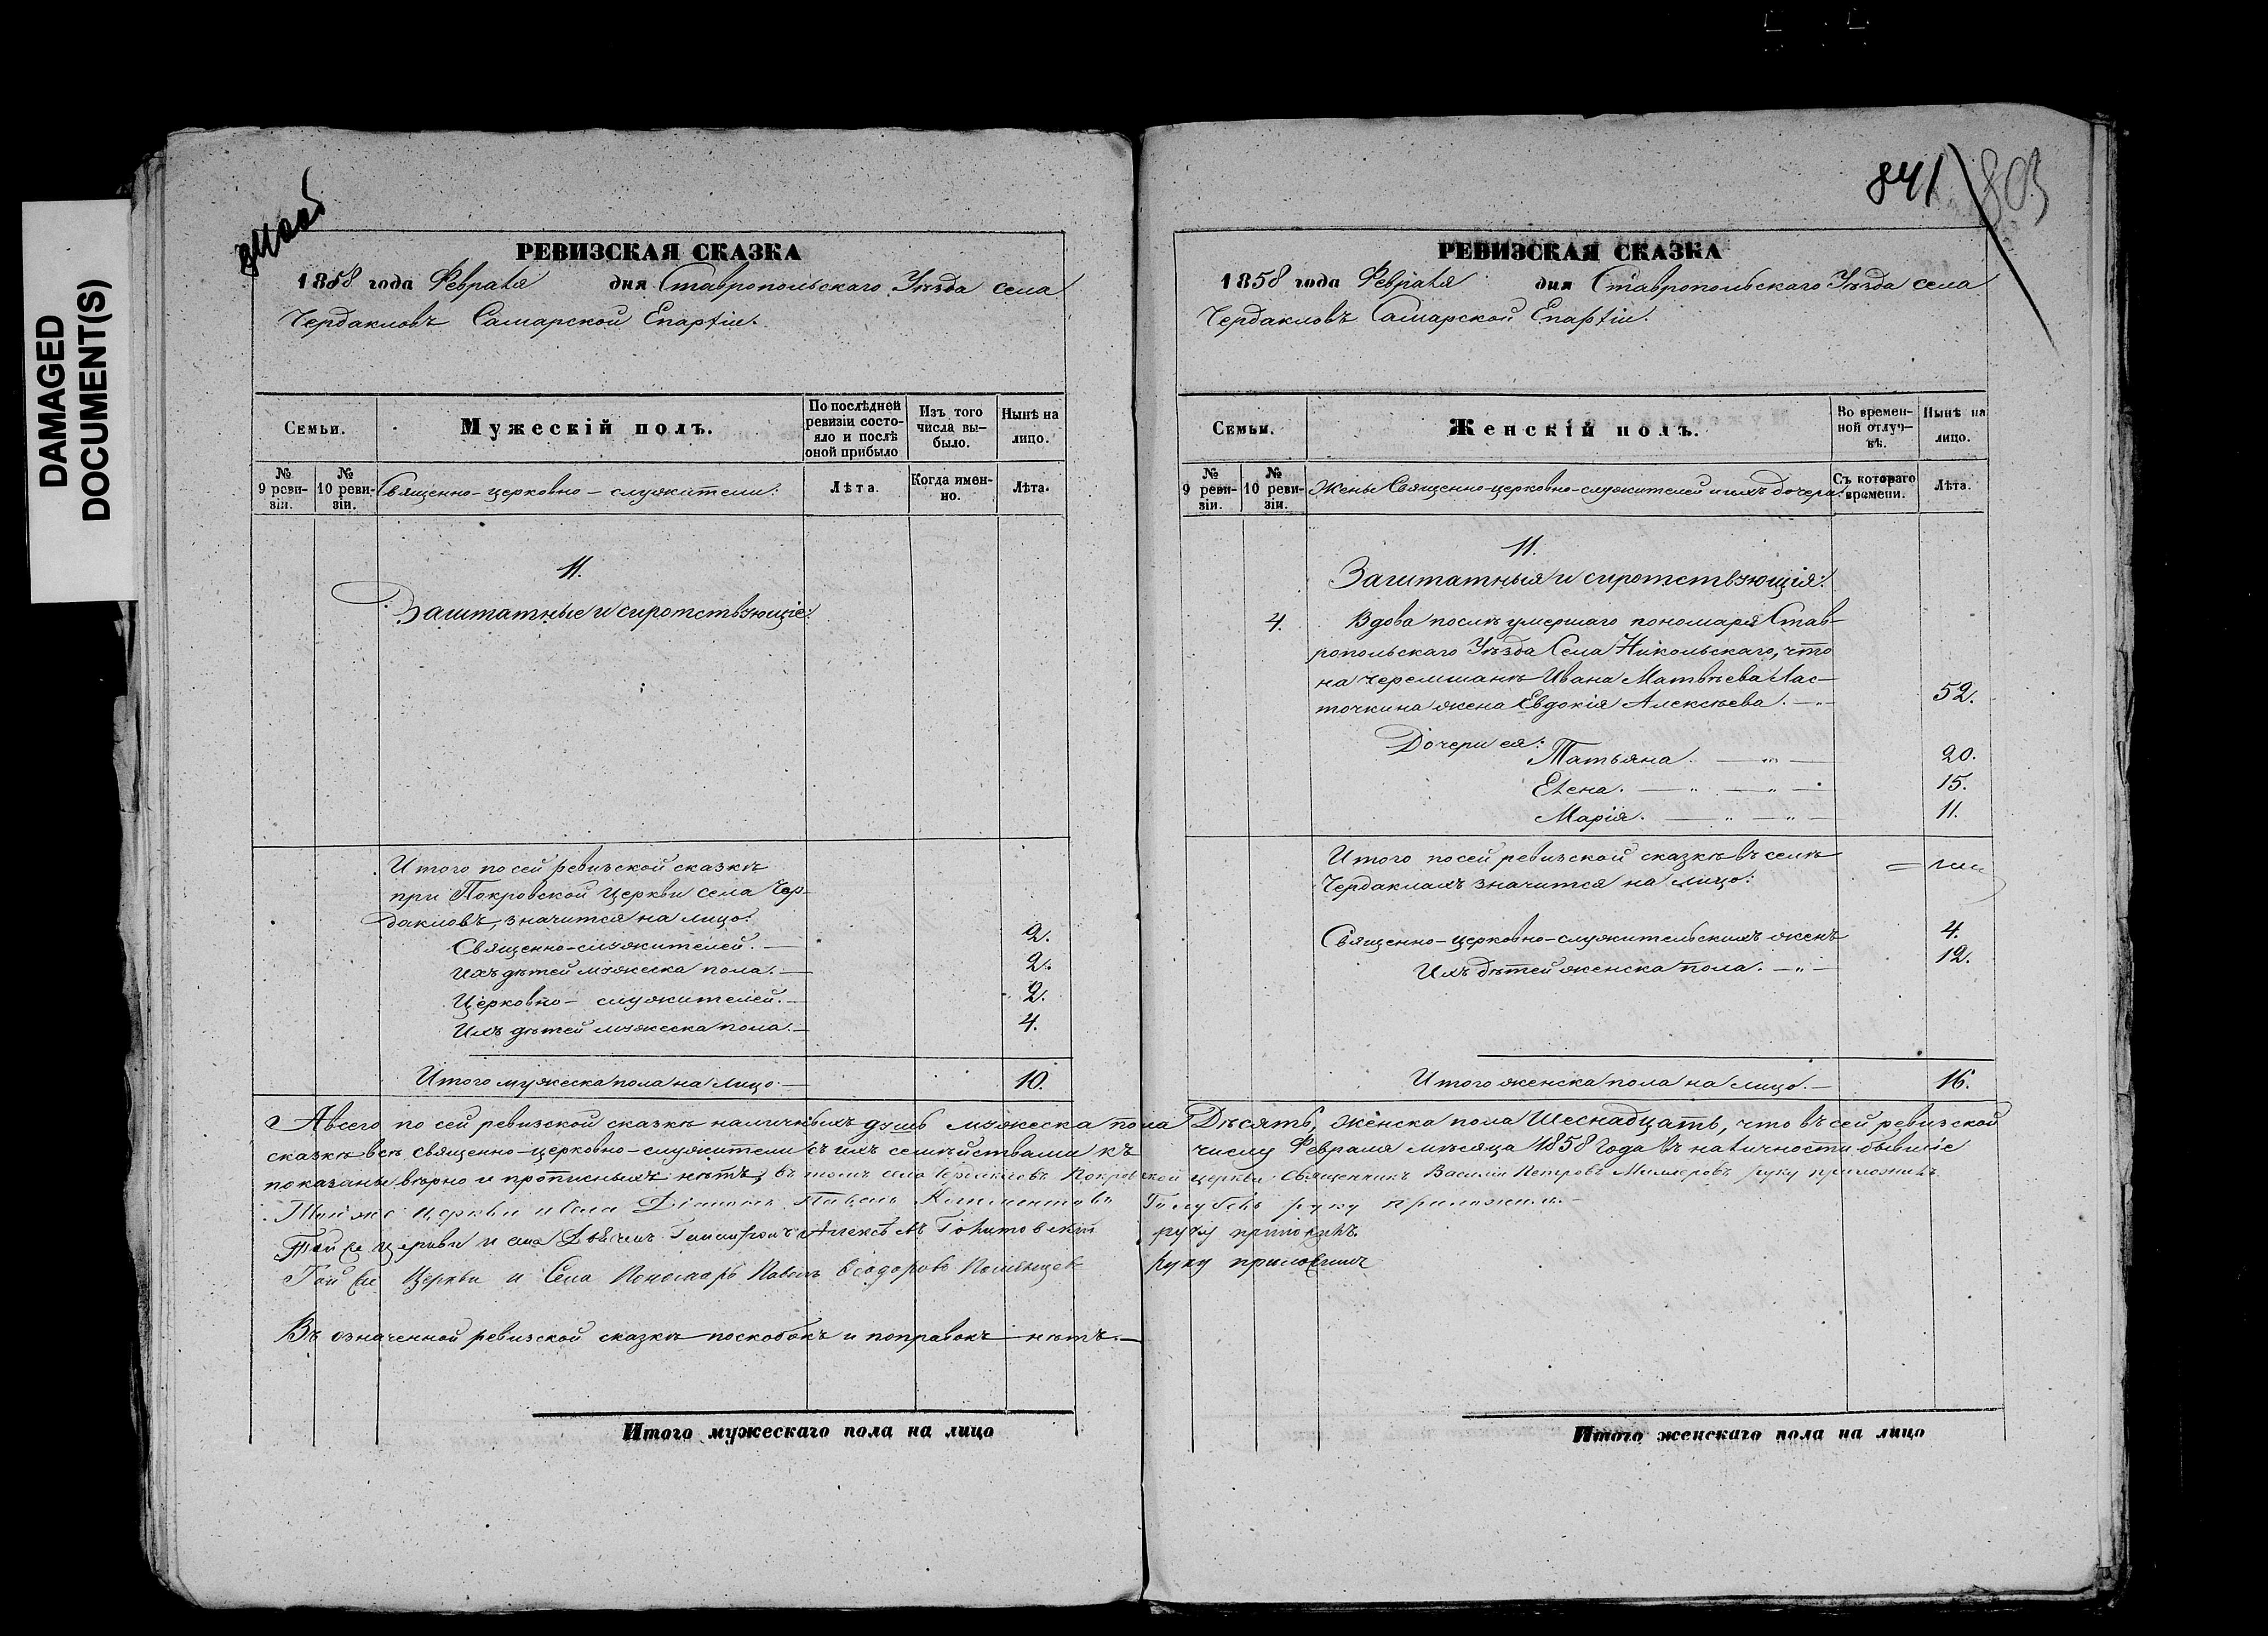 DAMAGED
DOCUMENT(S)
РЕВИЗСКАЯ СКАЗКА
1858 года Февраля дня Ставропольскаго Уѣзда села
Чердаковъ Самарской Епархіи.
Семьи.
Мужескій полъ.
По послѣдней ревизіи состояло и послѣ оной прибыло
Изъ того числа выбыло.
Нынѣ на лицо.
№ 9 ревизіи.
№ 10 ревизіи.
Священно-церковно-служители:
Лѣта.
Когда именно.
Лѣта.
11.
Заштатные и сиротствующіе:
Итого по сей ревизской сказкѣ
при Покровской Церкви села Чер-
даковъ, значится на лицо:
Священно-служителей. 2.
Ихъ дѣтей мужеска пола. 2.
Церковно-служителей. 2.
Ихъ дѣтей мужеска пола. 4.
Итого мужеска пола на лицо 10.
841 803
РЕВИЗСКАЯ СКАЗКА
1858 года Февраля дня Ставропольскаго Уѣзда села
Чердаковъ Самарской Епархіи.
Семьи.
Женскій полъ.
Во временной отлучкѣ.
Нынѣ на лицо.
№ 9 ревизіи.
№ 10 ревизіи.
Жены Священно-церковно-служителей и ихъ дочери.
Съ котораго времени.
Лѣта.
11.
Заштатныя и сиротствующія:
4. Вдова послѣ умершаго пономаря Став-
ропольскаго Уѣзда Села Никольскаго, что
на Черемшанѣ Ивана Матвѣева Лас-
точкина жена Евдокія Алексѣева. 52.
Дочери ея: Татьяна. 20.
Елена. 15.
Марія. 11.
Итого по сей ревизской сказкѣ въ селѣ
Чердакахъ значится на лицо:
Священно-церковно-служительскихъ женъ 4.
Ихъ дѣтей женска пола. 12.
Итого женска пола на лицо. 16.
А всего по сей ревизской сказкѣ наличныхъ душъ мужеска пола Десять, женска пола Шеснадцать, что въ сей ревизской
сказкѣ всѣ священно-церковно-служители съ ихъ семействами къ числу Февраля мѣсяца 1858 года въ наличности бывшіе
показаны вѣрно и прописныхъ нѣтъ, въ томъ села Чердаковъ Покровской церкви Священникъ Василій Петровъ руку приложилъ
Той же церкви и села Діаконъ Павелъ руку приложилъ.
Той же церкви и села Дьячекъ Алексѣевъ руку приложилъ.
Той же Церкви и Села Пономарь Павелъ Ѳеодоровъ руку приложилъ
Въ означенной ревизской сказкѣ поскобокъ и поправокъ нѣтъ.
Итого мужескаго пола на лицо
Итого женскаго пола на лицо